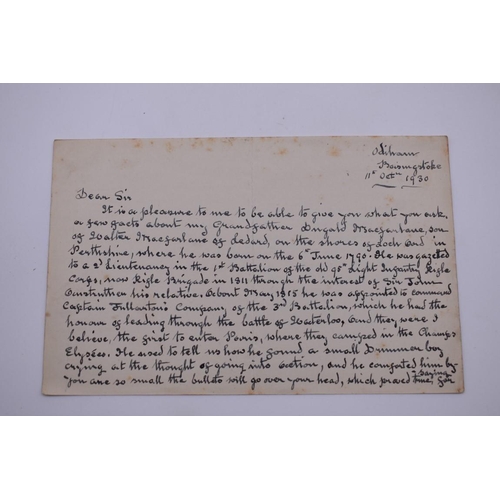 Odiham
Basingstoke
11th Octbr 1930
Dear Sir
It is a pleasure to me to be able to give you what you ask,
a few facts about my Grandfather Dugald Macfarlane, son
of Walter Macfarlane of Ledard, on the shores of Loch Ard in
Perthshire, where he was born on the 6th June 1790. He was gazetted
to a 2d Lieutenancy in the 1st Battalion of the old 95th Light Infantry Rifle
Corps, now Rifle Brigade in 1811 through the interest of Sir John
his relative. About May 1815 he was appointed to command
Captain Fullarton's Company, of the 3rd Battalion, which he had the
honour of leading through the battle of Waterloo, and they were I
believe, the first to enter Paris, where they camped in the Champs
Elysées. He used to tell us how he found a small Drummer boy
crying at the thought of going into action, and he comforted him by saying
you are so small the bullets will go over your head, which proved true, for